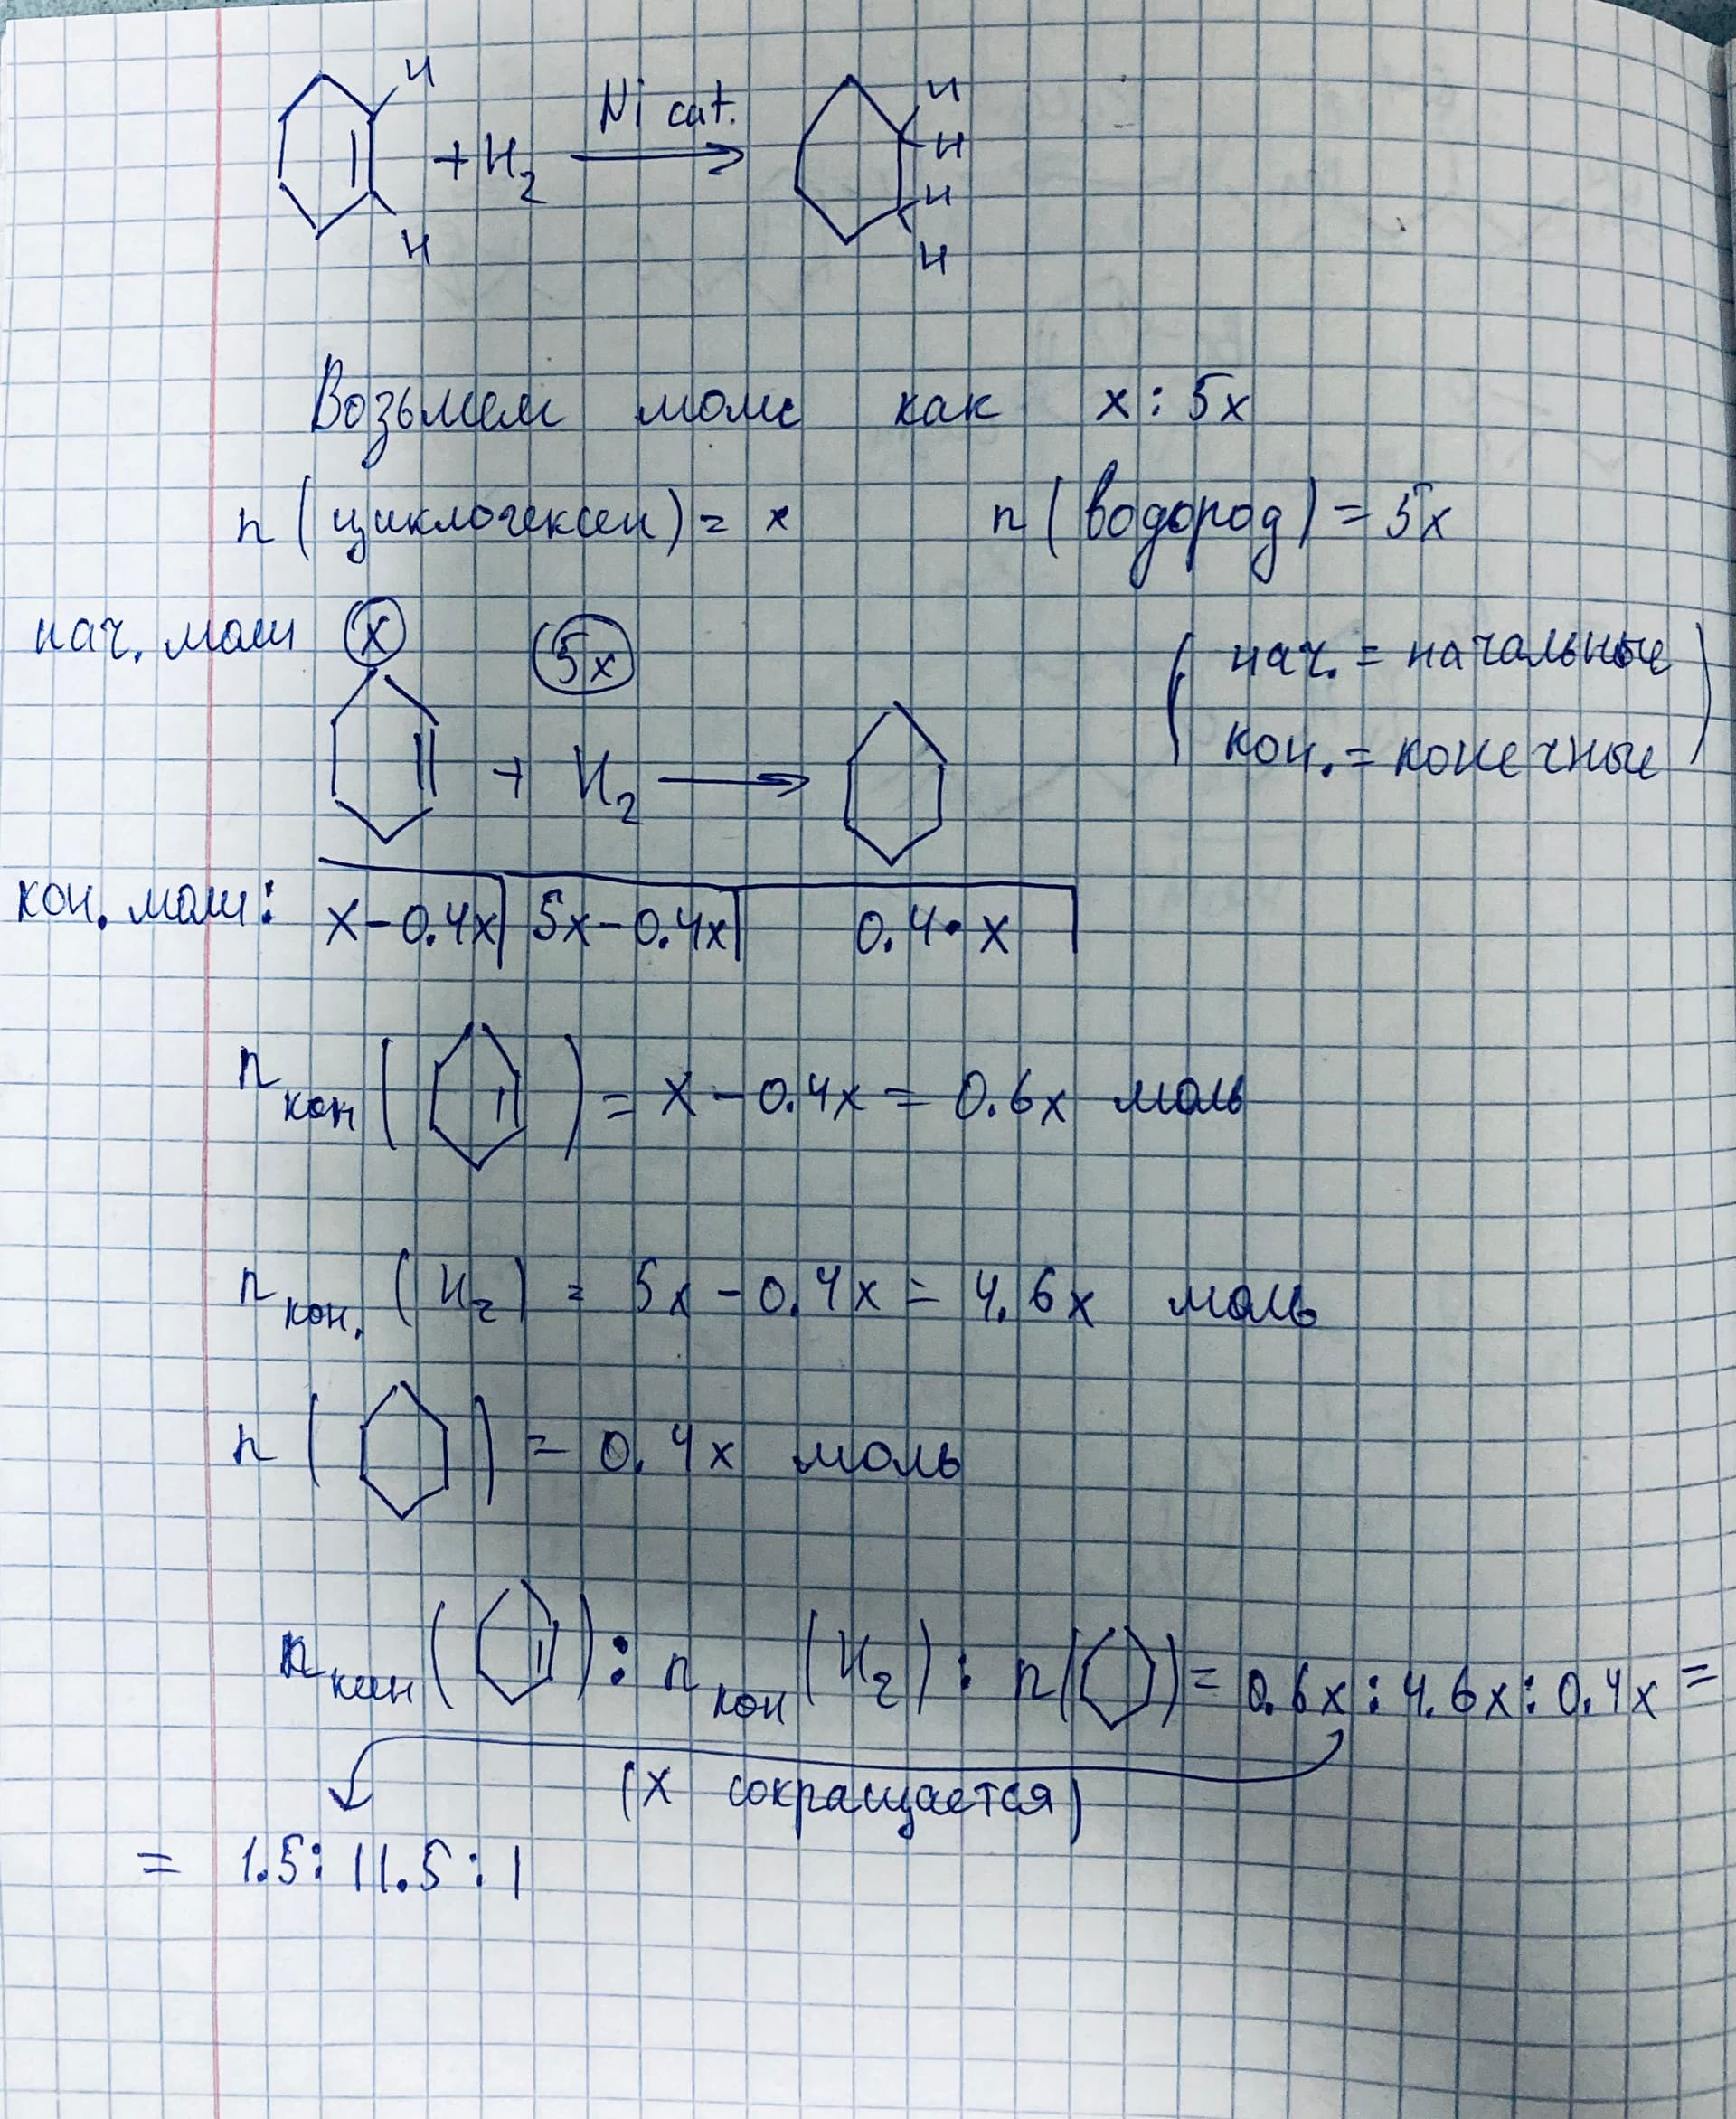 H
H
+ H₂ Ni cat.
H
H
H
H
Возьмем моли как x : 5x
n (циклогексен) = x n (водород) = 5x
нач. моли x 5x
( нач. = начальные
кон. = конечные )
+ H₂
кон. моли: x - 0.4x 5x - 0.4x 0.4 · x
n кон ( ) = x - 0.4x = 0.6x моль
n кон. (H₂) = 5x - 0.4x = 4.6x моль
n ( ) = 0.4x моль
n кон ( ) : n кон (H₂) : n ( ) = 0.6x : 4.6x : 0.4x =
(x сокращается)
= 1.5 : 11.5 : 1